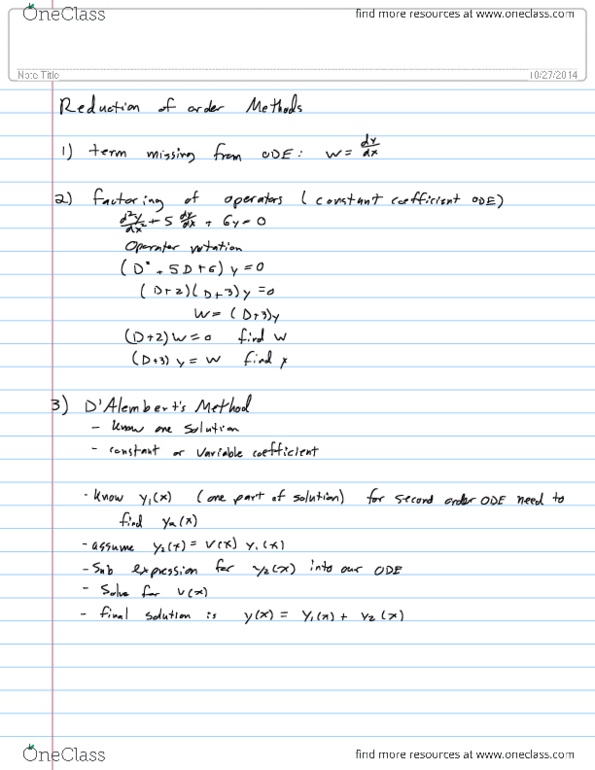 OneClass find more resources at www.oneclass.com
Note Title 10/27/2014
Reduction of order Methods
1) term missing from ODE: w = dy/dx
2) factoring of operators (constant coefficient ODE)
d²y/dx² + 5 dy/dx + 6y = 0
Operator notation
(D² + 5D + 6) y = 0
(D+2)(D+3) y = 0
w = (D+3)y
(D+2) w = 0 find w
(D+3) y = w find y
3) D'Alembert's Method
- know one solution
- constant or variable coefficient
- know y₁(x) (one part of solution) for second order ODE need to
find y₂(x)
- assume y₂(x) = v(x) y₁(x)
- Sub expression for y₂(x) into our ODE
- Solve for v(x)
- final solution is y(x) = y₁(x) + y₂(x)
OneClass find more resources at www.oneclass.com